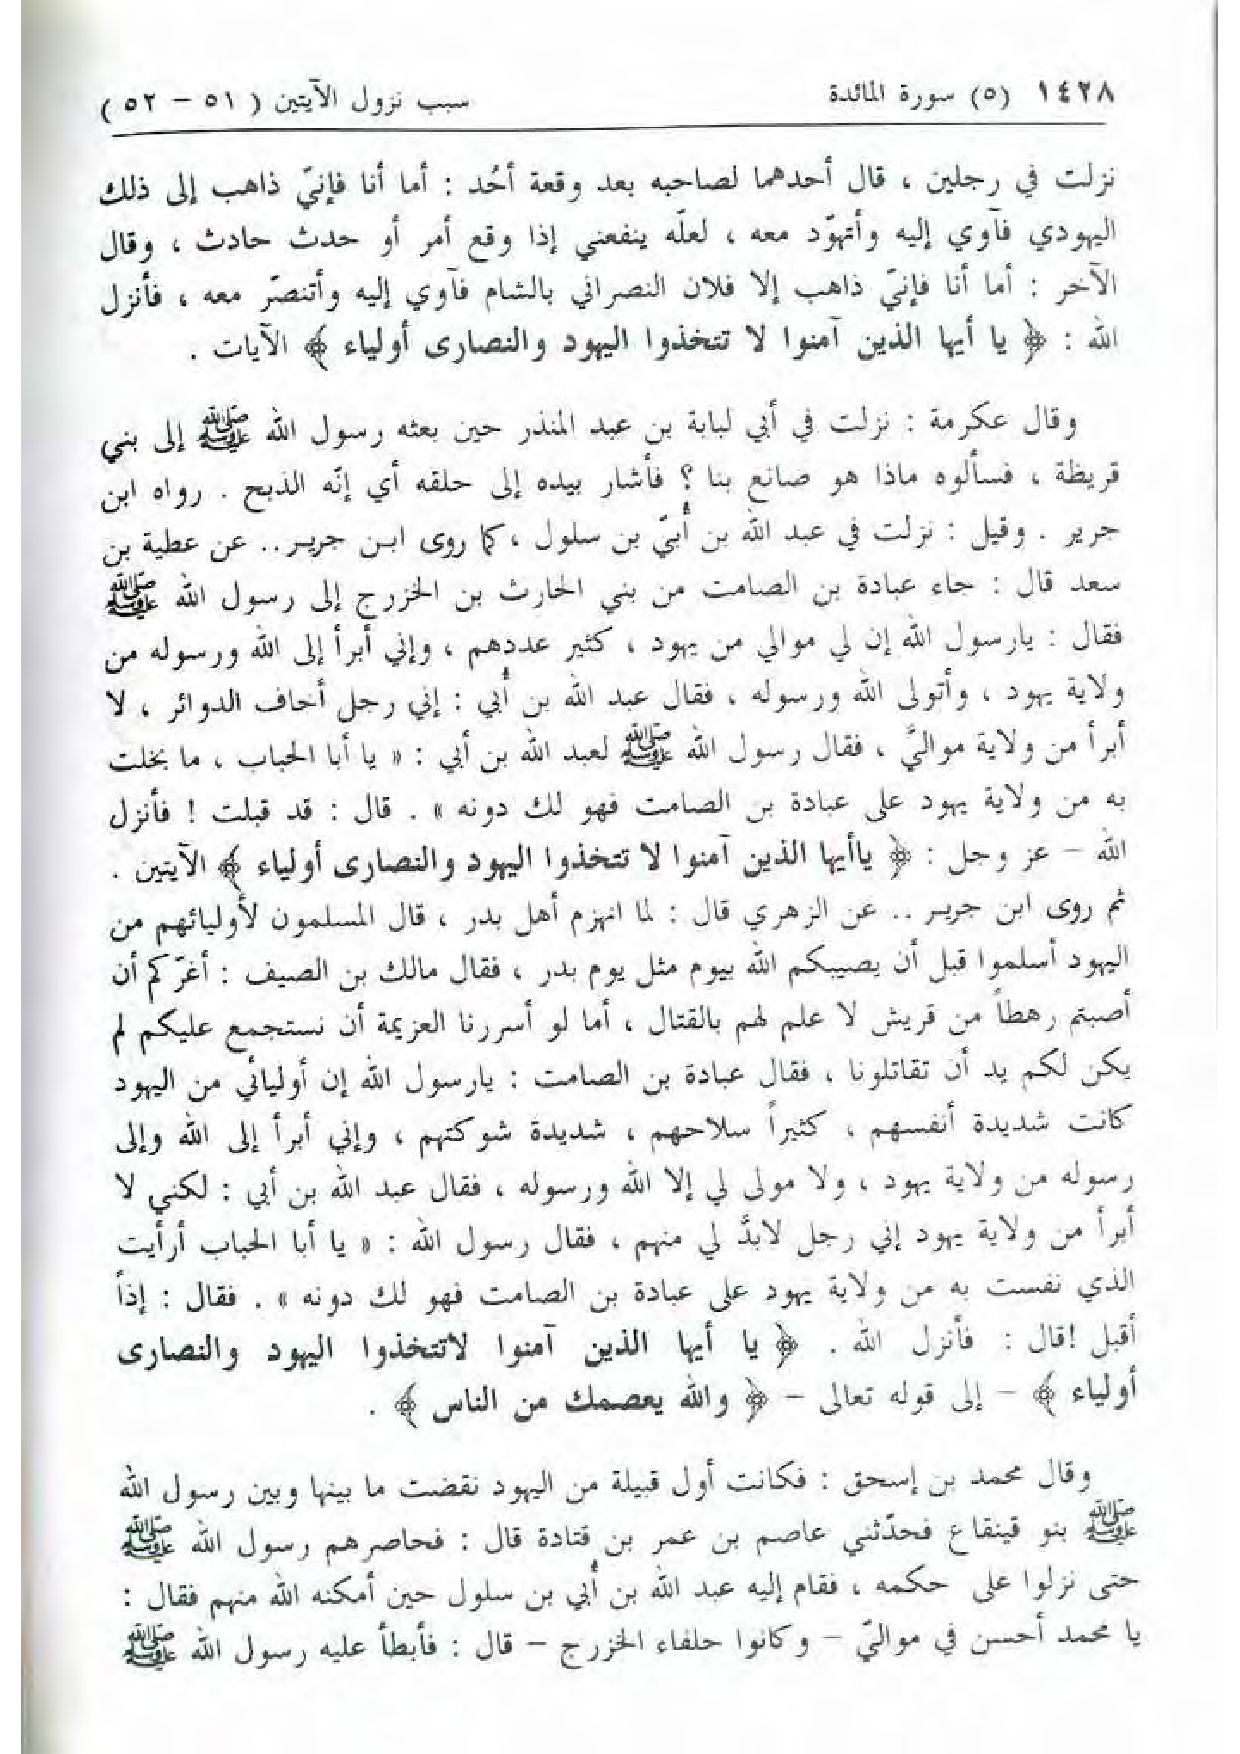 ١٤٢٨ (٥) سورة المائدة سبب نزول الآيتين ( ٥١ – ٥٢ )
نزلت في رجلين ، قال أحدهما لصاحبه بعد وقعة أُحُد : أما أنا فإنيّ ذاهب إلى ذلك
اليهودي فآوي إليه وأتهوّد معه ، لعلّه ينفعني إذا وقع أمر أو حدث حادث ، وقال
الآخر : أما أنا فإنيّ ذاهب إلا فلان النصراني بالشام فآوي إليه وأتنصّر معه ، فأنزل
الله : ﴿ يا أيها الذين آمنوا لا تتخذوا اليهود والنصارى أولياء ﴾ الآيات .
وقال عكرمة : نزلت في أبي لبابة بن عبد المنذر حين بعثه رسول الله ﷺ إلى بني
قريظة ، فسألوه ماذا هو صانع بنا ؟ فأشار بيده إلى حلقه أي إنّه الذبح . رواه ابن
جرير . وقيل : نزلت في عبد الله بن أُبيّ بن سلول ، كما روى ابن جرير .. عن عطية بن
سعد قال : جاء عبادة بن الصامت من بني الحارث بن الخزرج إلى رسول الله ﷺ
فقال : يارسول الله إن لي موالي من يهود ، كثير عددهم ، وإني أبرأ إلى الله ورسوله من
ولاية يهود ، وأتولى الله ورسوله ، فقال عبد الله بن أُبي : إني رجل أخاف الدوائر ، لا
أبرأ من ولاية مواليَّ ، فقال رسول الله ﷺ لعبد الله بن أبي : « يا أبا الحباب ، ما بخلت
به من ولاية يهود على عبادة بن الصامت فهو لك دونه » . قال : قد قبلت ! فأنزل
الله – عز وجل : ﴿ ياأيها الذين آمنوا لا تتخذوا اليهود والنصارى أولياء ﴾ الآيتين .
ثم روى ابن جرير .. عن الزهري قال : لما انهزم أهل بدر ، قال المسلمون لأوليائهم من
اليهود أسلموا قبل أن يصيبكم الله بيوم مثل يوم بدر ، فقال مالك بن الصيف : أغرّكم أن
أصبتم رهطاً من قريش لا علم لهم بالقتال ، أما لو أسررنا العزيمة أن نستجمع عليكم لم
يكن لكم يد أن تقاتلونا ، فقال عبادة بن الصامت : يارسول الله إن أوليائي من اليهود
كانت شديدة أنفسهم ، كثيراً سلاحهم ، شديدة شوكتهم ، وإني أبرأ إلى الله وإلى
رسوله من ولاية يهود ، ولا مولى لي إلا الله ورسوله ، فقال عبد الله بن أبي : لكني لا
أبرأ من ولاية يهود إني رجل لابدَّ لي منهم ، فقال رسول الله : « يا أبا الحباب أرأيت
الذي نفست به من ولاية يهود على عبادة بن الصامت فهو لك دونه » . فقال : إذاً
أقبل !قال : فأنزل الله . ﴿ يا أيها الذين آمنوا لاتتخذوا اليهود والنصارى
أولياء ﴾ – إلى قوله تعالى – ﴿ والله يعصمك من الناس ﴾ .
وقال محمد بن إسحق : فكانت أول قبيلة من اليهود نقضت ما بينها وبين رسول الله
ﷺ بنو قينقاع فحدّثني عاصم بن عمر بن قتادة قال : فحاصرهم رسول الله ﷺ
حتى نزلوا على حكمه ، فقام إليه عبد الله بن أُبي بن سلول حين أمكنه الله منهم فقال :
يا محمد أحسن في مواليّ – وكانوا حلفاء الخزرج – قال : فأبطأ عليه رسول الله ﷺ